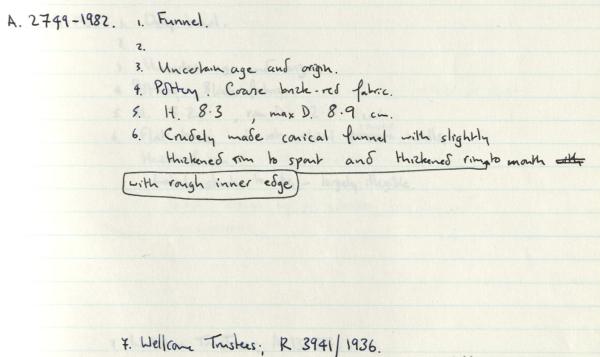 A. 2749-1982. 1. Funnel.
2.
3. Uncertain age and origin.
4. Pottery. Coarse brick-red fabric.
5. H. 8.3, max D. 8.9 cm.
6. Crudely made conical funnel with slightly
thickened rim to spout and thickened rim to mouth
with rough inner edge
7. Wellcome Trustees; R 3941/1936.